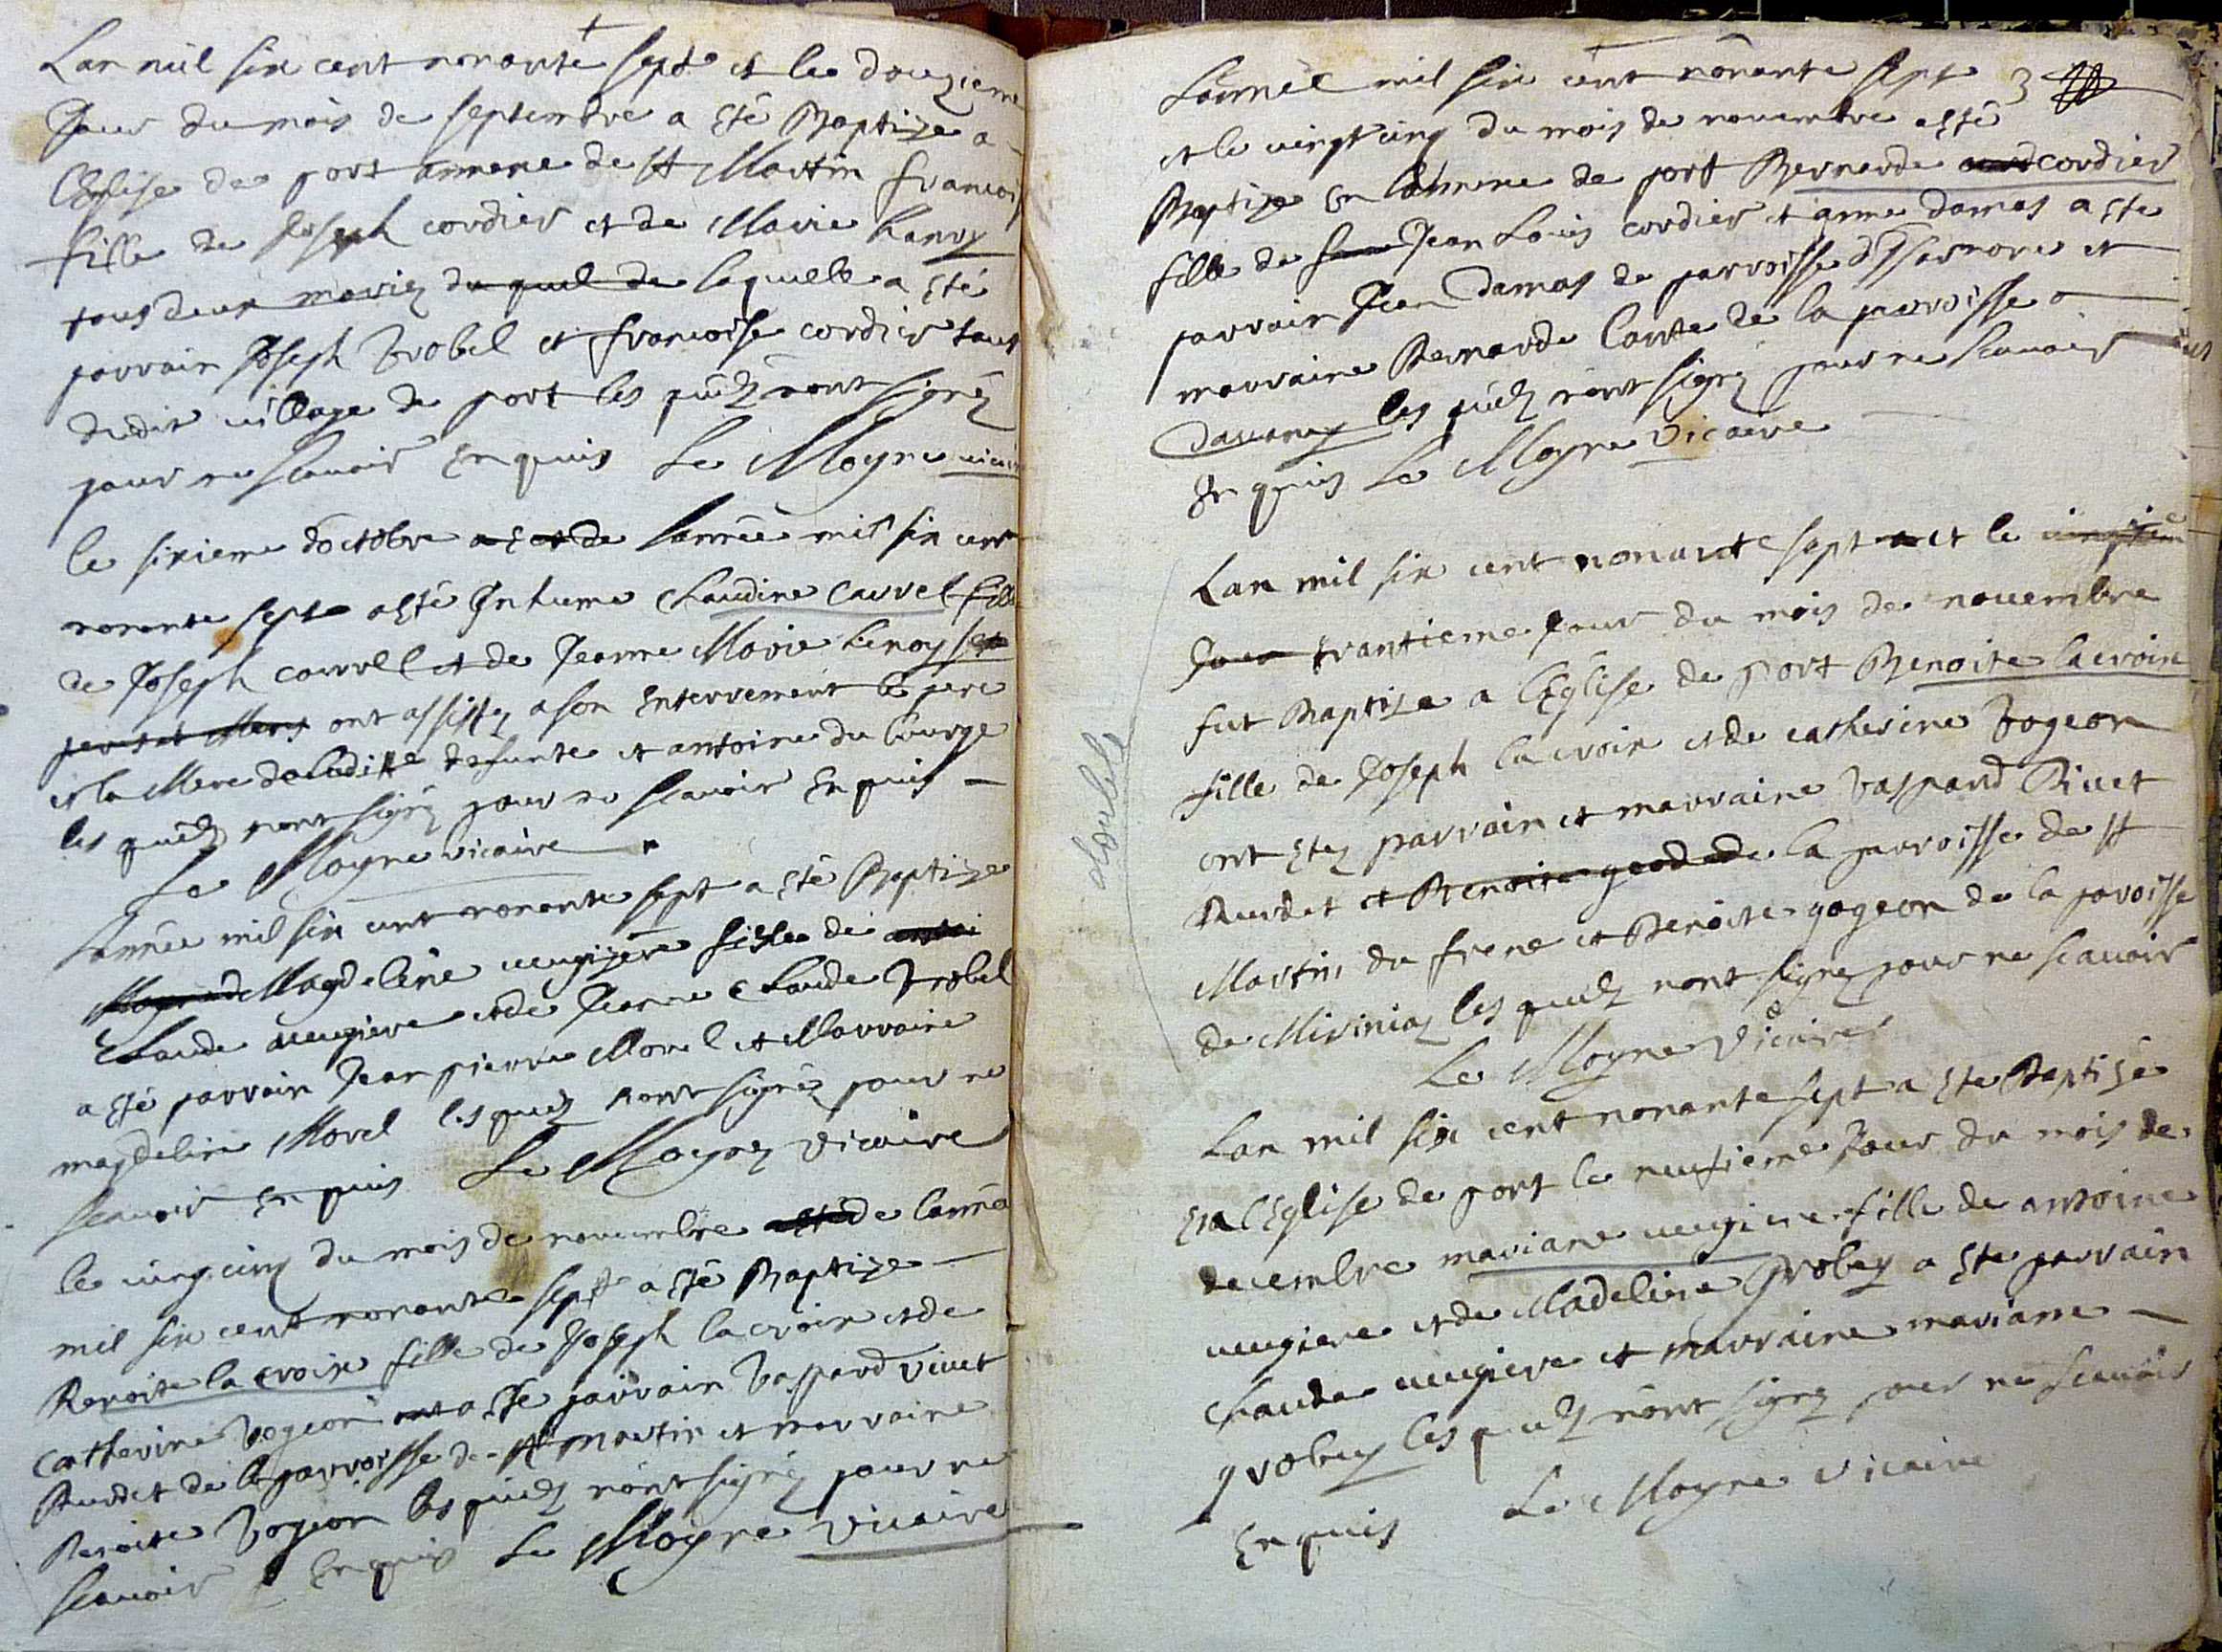 Lan mil six cent nonante sept et le douzieme
Jour du mois de septembre a esté Baptize a
lEglise de port annexe de st Martin francois
fille de Joseph cordier et de Marie
tous deux mariez du quel de laquelle a esté
parrain Joseph Grobel et francoise cordier tous
dudit village de port les quelz nont signéz
pour ne scavoir Enquis Le Moyne
le sixieme doctobre de lannée mil six cent
nonante sept a esté Inhume Claudine Carrel fille
de Joseph carrel et de Jeanne Marie
ont assistez a son Enterrement le pere
et la Mere de ladite defunte et antoine du Courge
les quelz nont signéz pour ne scavoir Enquis
Le Moyne vicaire
lannée mil six cent nonante sept a esté Baptize
Magdelene fille de
Claude et de Jeanne Claude Grobel
a esté parrain Jean pierre Morel et Marraine
magdeline Morel lesquelz nont signéz pour ne
scavoir Enquis Le Moyne vicaire
le vingcinq du mois de novembre de lannéé
mil six cent nonante sept a esté Baptize
Benoite la croix fille de Joseph lacroix et de
Catherine Gogeon a esté parrain Gaspard Rivet
Burdet de la parroisse de st martin et marraine
Benoite Gogeon les quelz nont signéz pour ne
scavoir Enquis Le Moyne vicaire
Lannéé mil six cent nonante sept 3
et le vingt cinq du mois de novembre a esté
Baptize En lannexe de port Bernarde cordier
fille de Jean Louis cordier et anne damas a este
parrain Jean Damas de parroisse et
marraine Bernarde de la parroisse
les quelz nont signéz pour ne scavoir
Enquis Le Moyne vicaire
Lan mil six cent nonante sept et le
trantieme Jour du mois de novembre
fut Baptize a lEglise de port Benoite lacroix
fille de Joseph lacroix et de catherine Gogeon
double
ont Estez parrain et marraine Gaspard Rivet
Burdet et Benoite de la parroisse de st
Martin du frene et Benoite gogeon de la paroisse
de les quelz nont signéz pour ne scavoir
Le Moyne vicaire
Lan mil six cent nonante sept a Este Baptisée
En lEglise de port le neufieme Jour du mois de
decembre mariane fille de antoine
et de Madeline Grobey a Este parrain
Claude et marraine mariane
grobey les quelz nont signéz pour ne scavoir
Enquis Le Moyne vicaire